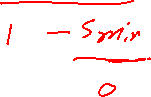 1 - Smin
0